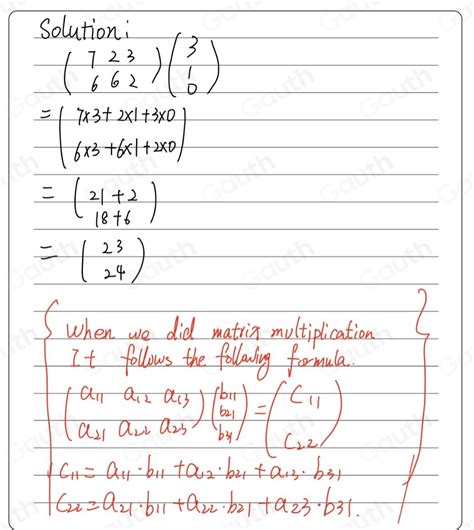 Solution:
( 7 2 3 ) ( 3
6 6 2 1
0 )
= ( 7×3+2×1+3×0
6×3+6×1+2×0 )
= ( 21+2
18+6 )
= ( 23
24 )
When we did matrix multiplication
It follows the following formula.
( a11 a12 a13 ) ( b11 ) = ( C11
a21 a22 a23 b21
b31 C22 )
C11 = a11·b11+a12·b21+a13·b31
C22=a21·b11+a22·b21+a23·b31.